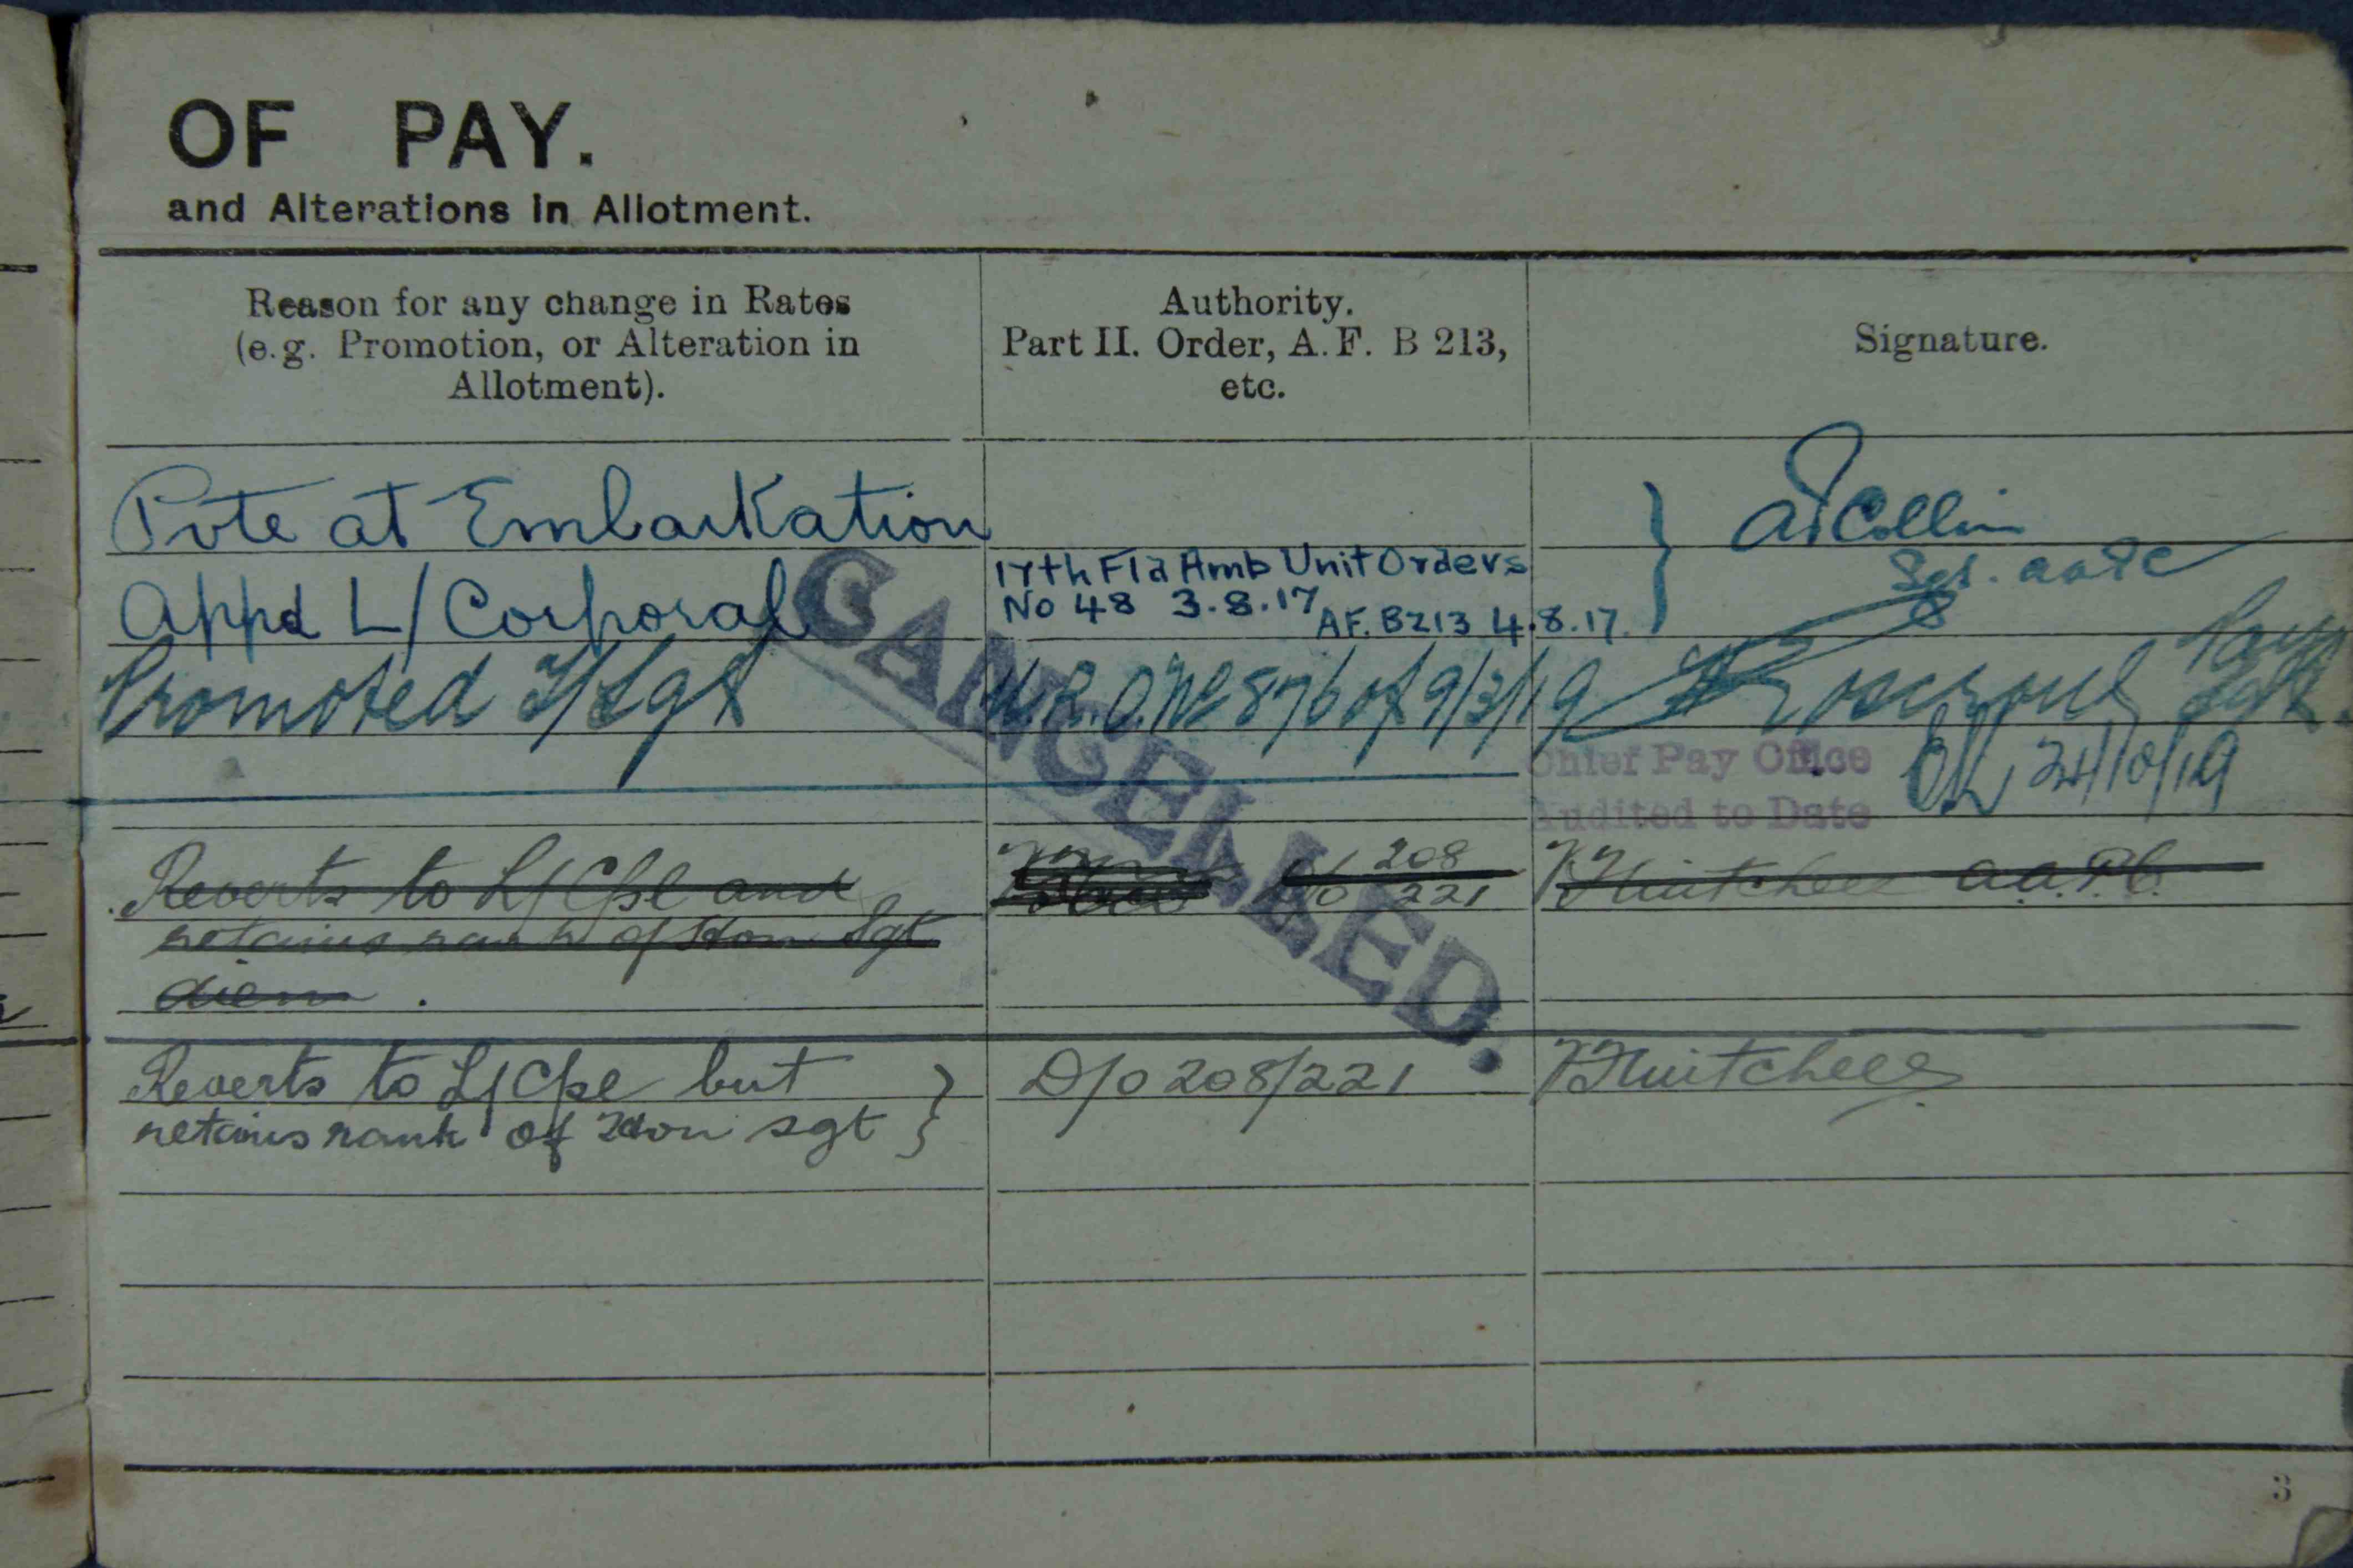 OF PAY.
and Alterations in Allotment.
Reason for any change in Rates
(e.g. Promotion, or Alteration in
Allotment).
Authority.
Part II. Order, A.F. B 213,
etc.
Signature.
Pvte at Embarkation
A Collin
Appd L/Corporal
17th Fld Amb Unit Orders
No 48 3.8.17 A.F. B213 4.8.17.
Sgt. AAPC
Promoted T/Sgt
W.R.O. No 876 of 9/3/19
Pay Sgt.
CANCELLED.
Chief Pay Office
Audited to Date
24/10/19
Reverts to L/Cpl and
retains rank of Hon Sgt
diem.
D/o 208
221
A.A.P.C.
Reverts to L/Cpl but
retains rank of Hon sgt
D/o 208/221
3